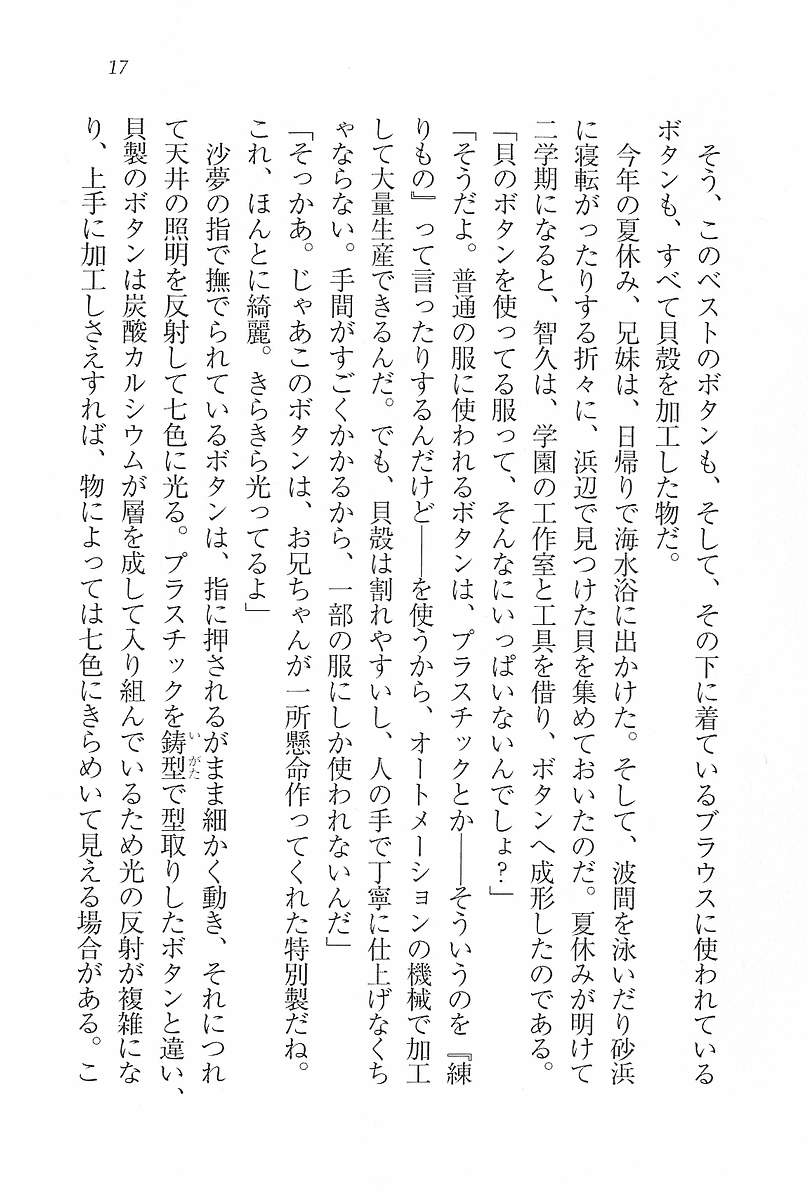 17
そう、このベストのボタンも、そして、その下に着ているブラウスに使われている
ボタンも、すべて貝殻を加工した物だ。
今年の夏休み、兄妹は、日帰りで海水浴に出かけた。そして、波間を泳いだり砂浜
に寝転がったりする折々に、浜辺で見つけた貝を集めておいたのだ。夏休みが明けて
二学期になると、智久は、学園の工作室と工具を借り、ボタンへ成形したのである。
「貝のボタンを使ってる服って、そんなにいっぱいないんでしょ?」
「そうだよ。普通の服に使われるボタンは、プラスチックとか――そういうのを『練
りもの』って言ったりするんだけど――を使うから、オートメーションの機械で加工
して大量生産できるんだ。でも、貝殻は割れやすいし、人の手で丁寧に仕上げなくち
ゃならない。手間がすごくかかるから、一部の服にしか使われないんだ」
「そっかあ。じゃあこのボタンは、お兄ちゃんが一所懸命作ってくれた特別製だね。
これ、ほんとに綺麗。きらきら光ってるよ」
沙夢の指で撫でられているボタンは、指に押されるがまま細かく動き、それにつれ
て天井の照明を反射して七色に光る。プラスチックを鋳型いがたで型取りしたボタンと違い、
貝製のボタンは炭酸カルシウムが層を成して入り組んでいるため光の反射が複雑にな
り、上手に加工しさえすれば、物によっては七色にきらめいて見える場合がある。こ